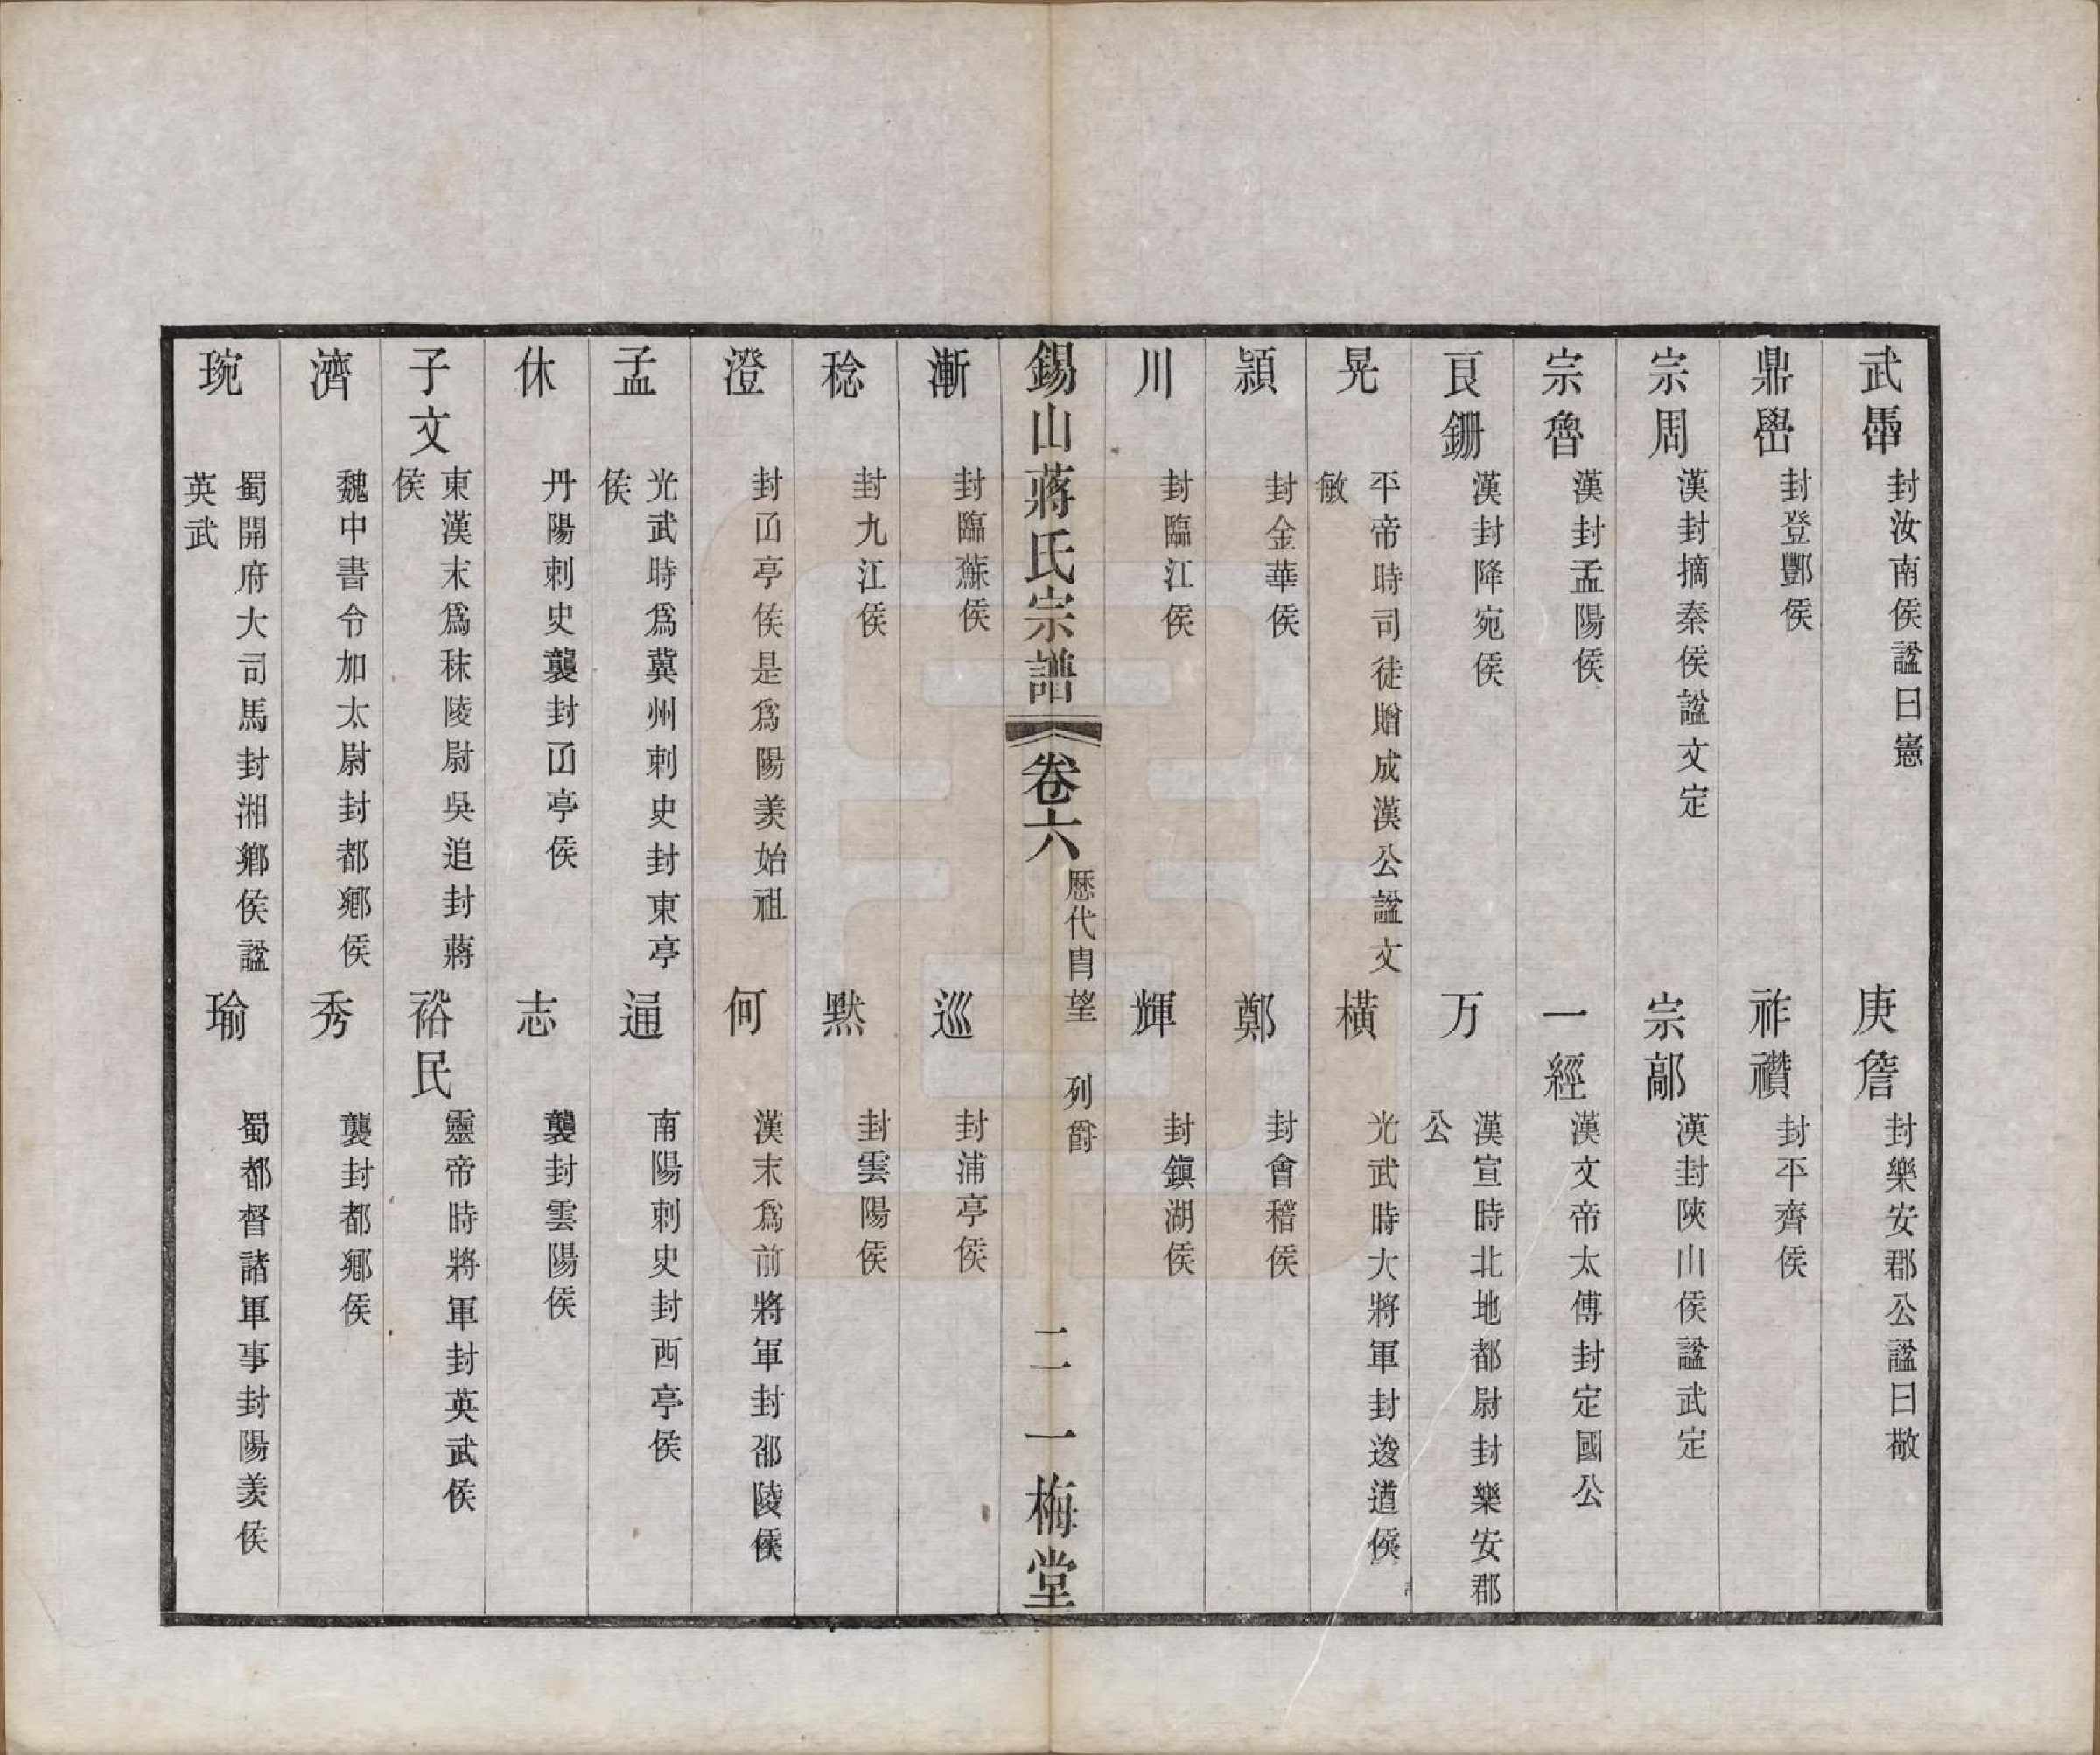 武𤲞 封汝南侯諡曰憲
庚詹 封樂安郡公諡曰敬
鼎壆 封登酆侯
祚禶 封平齊侯
宗周 漢封摘秦侯諡文定
宗鄗 漢封陝山侯諡武定
宗魯 漢封孟陽侯
一經 漢文帝太傅封定國公
良鉶 漢封降宛侯
万 漢宣時北地都尉封樂安郡
公
晃 平帝時司徒贈成漢公諡文
敏
橫 光武時大將軍封逡遒侯
潁 封金華侯
鄭 封會稽侯
川 封臨江侯
輝 封鎭湖侯
錫山蔣氏宗譜 卷六 歷代冑望 列爵 二 一梅堂
漸 封臨蘇侯
巡 封浦亭侯
稔 封九江侯
默 封雲陽侯
澄 封㓋亭侯是爲陽羨始祖
何 漢末爲前將軍封邵陵侯
孟 光武時爲冀州刺史封東亭
侯
通 南陽刺史封西亭侯
休 丹陽刺史襲封㓋亭侯
志 襲封雲陽侯
子文 東漢末爲秣陵尉吳追封蔣
侯
裕民 靈帝時將軍封英武侯
濟 魏中書令加太尉封都鄉侯
秀 襲封都鄉侯
琬 蜀開府大司馬封湘鄉侯諡
英武
瑜 蜀都督諸軍事封陽羨侯